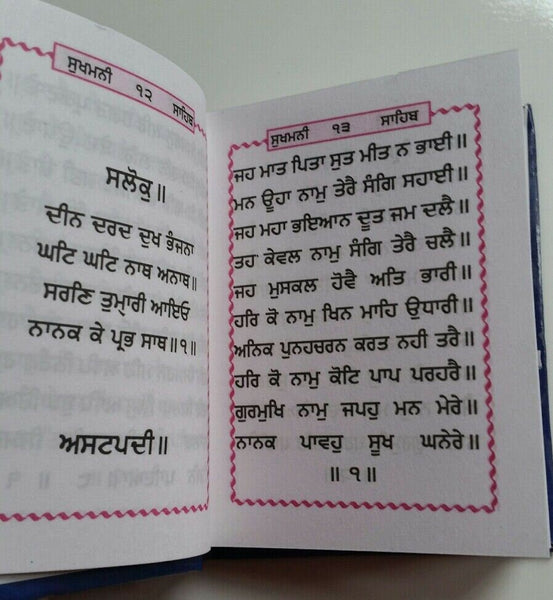 ਸੁਖਮਨੀ ੧੨ ਸਾਹਿਬ
ਸਲੋਕੁ॥
ਦੀਨ ਦਰਦ ਦੁਖ ਭੰਜਨਾ
ਘਟਿ ਘਟਿ ਨਾਥ ਅਨਾਥ॥
ਸਰਣਿ ਤੁਮ੍ਹਾਰੀ ਆਇਓ
ਨਾਨਕ ਕੇ ਪ੍ਰਭ ਸਾਥ॥੧॥
ਅਸਟਪਦੀ॥
ਸੁਖਮਨੀ ੧੩ ਸਾਹਿਬ
ਜਹ ਮਾਤ ਪਿਤਾ ਸੁਤ ਮੀਤ ਨ ਭਾਈ॥
ਮਨ ਊਹਾ ਨਾਮੁ ਤੇਰੈ ਸੰਗਿ ਸਹਾਈ॥
ਜਹ ਮਹਾ ਭਇਆਨ ਦੂਤ ਜਮ ਦਲੈ॥
ਤਹ ਕੇਵਲ ਨਾਮੁ ਸੰਗਿ ਤੇਰੈ ਚਲੈ॥
ਜਹ ਮੁਸਕਲ ਹੋਵੈ ਅਤਿ ਭਾਰੀ॥
ਹਰਿ ਕੋ ਨਾਮੁ ਖਿਨ ਮਾਹਿ ਉਧਾਰੀ॥
ਅਨਿਕ ਪੁਨਹਚਰਨ ਕਰਤ ਨਹੀ ਤਰੈ॥
ਹਰਿ ਕੋ ਨਾਮੁ ਕੋਟਿ ਪਾਪ ਪਰਹਰੈ॥
ਗੁਰਮੁਖਿ ਨਾਮੁ ਜਪਹੁ ਮਨ ਮੇਰੇ॥
ਨਾਨਕ ਪਾਵਹੁ ਸੂਖ ਘਨੇਰੇ॥
॥੧॥